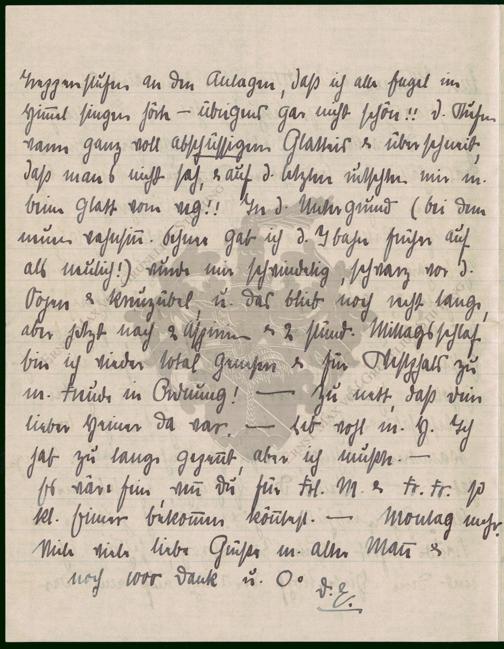 Treppenstufen an den Anlagen, daß ich alle Engel im
Himmel singen hörte – übrigens gar nicht schön!! d. Stufen
waren ganz voll abschüssigem Glatteis & überschneit,
daß man's nicht sah, & auf d. letzten rutschten mir m.
beine glatt vom weg!! In d. Untergrund (bei dem
neuen wahnsin. gab ich d. bahn früher auf
als neulich!) wurde mir schwindelig, schwarz vor d.
Augen & kreuzübel, u. das blieb noch recht lange,
aber jetzt nach 2 Aspirin & 2 stünd. Mittagsschlaf
bin ich wieder total genesen & für Westphals zu
m. Freude in Ordnung! — Zu nett, daß dein
lieber Heiner da war. — Leb wohl m. H. Ich
hab zu lange gepennt, aber ich mußte. —
Es wäre fein, wenn du für Frl. M. & Fr. Fr. so
kl. Eimer bekommen könntest. — Montag mehr.
Viele viele liebe Grüße m. alter Mann &
noch 1000 Dank u. O.
d. E.